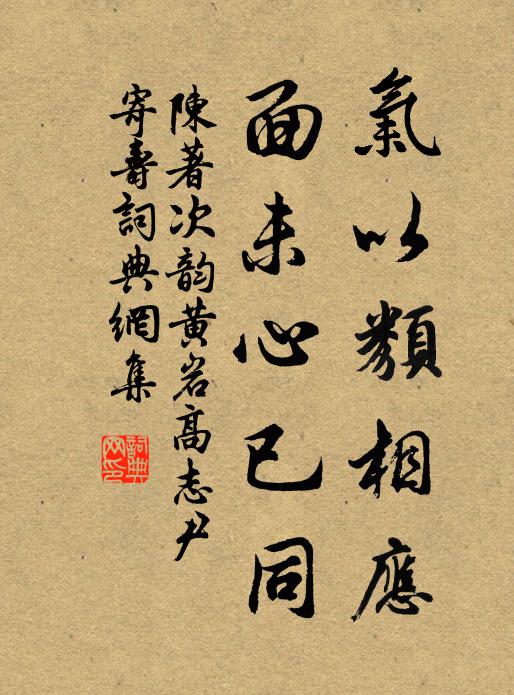 氣以類相應
面未心已同
陳著次韵黄岩高志尹
寄壽詞典網集
詞典网印